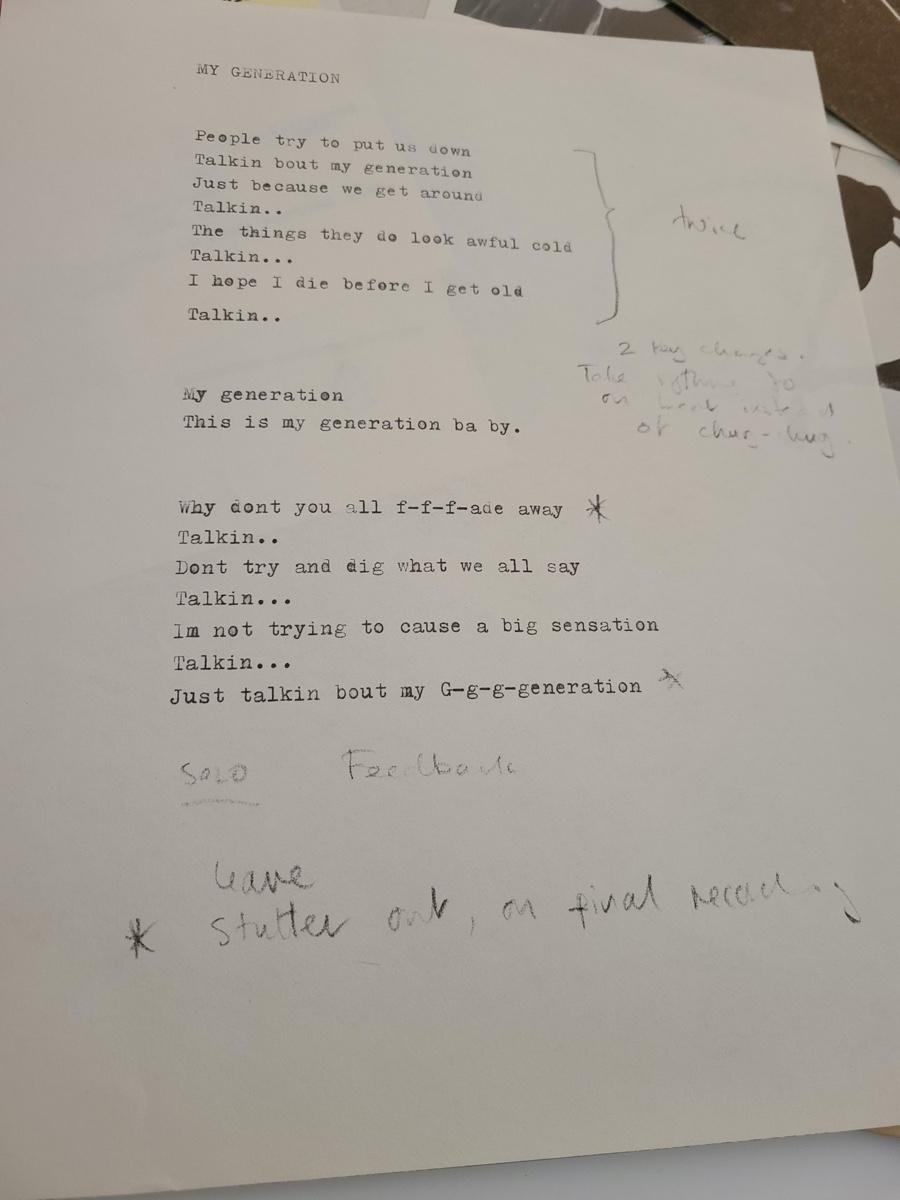 MY GENERATION
People try to put us down
Talkin bout my generation
Just because we get around
Talkin..
The things they do look awful cold
Talkin...
I hope I die before I get old
Talkin..
twice
2 key changes.
Take rythme to
on beat instead
of chug-hug.
My generation
This is my generation ba by.
Why dont you all f-f-f-ade away *
Talkin..
Dont try and dig what we all say
Talkin...
Im not trying to cause a big sensation
Talkin...
Just talkin bout my G-g-g-generation *
SOLO Feedback
leave
* Stutter out, on final recording